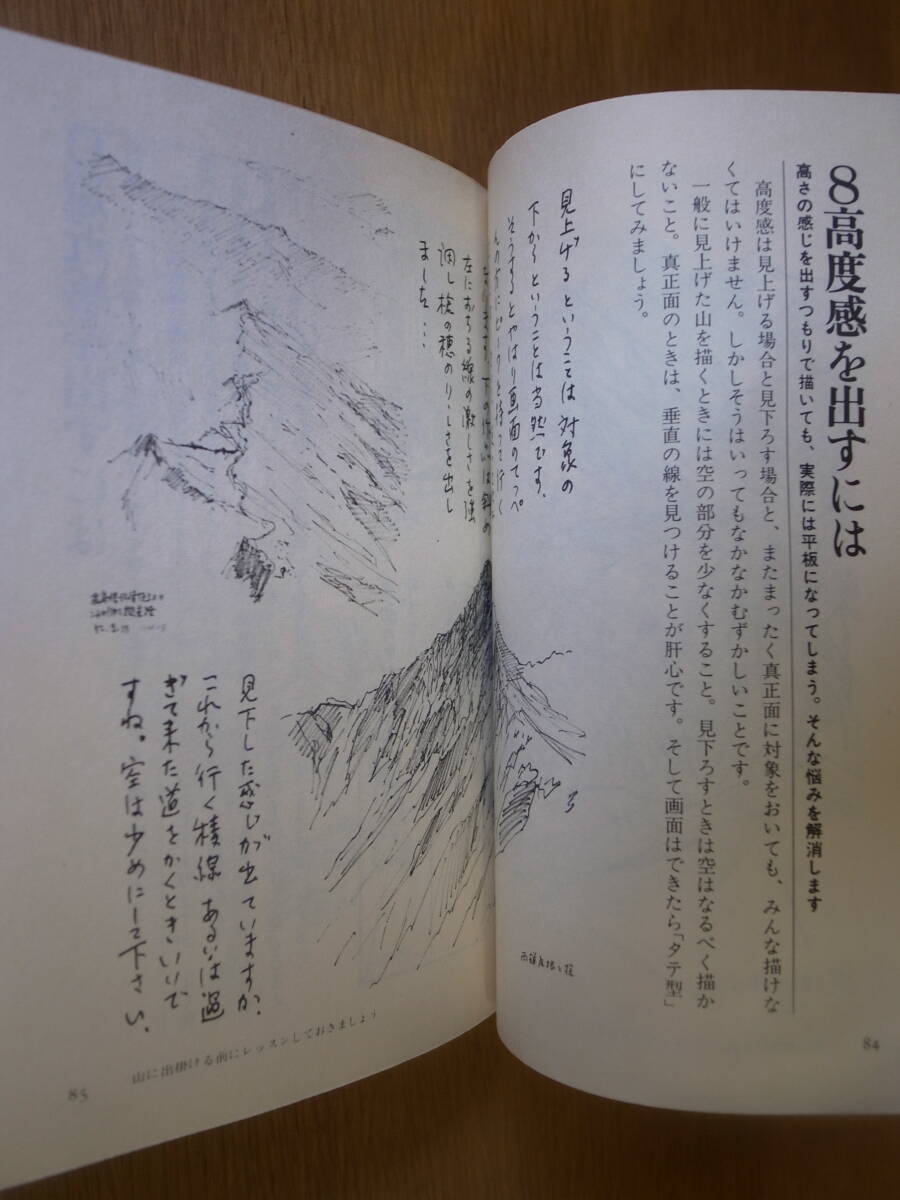 8高度感を出すには
高さの感じを出すつもりで描いても、実際には平板になってしまう。そんな悩みを解消します
高度感は見上げる場合と見下ろす場合と、またまったく真正面に対象をおいても、みんな描けな
くてはいけません。しかしそうはいってもなかなかむずかしいことです。
一般に見上げた山を描くときには空の部分を少なくすること。見下ろすときは空はなるべく描か
ないこと。真正面のときは、垂直の線を見つけることが肝心です。そして画面はできたら「タテ型」
にしてみましょう。
見上げるということは対象の
下からということは当然です.
そうするとやはり画面のてっぺ
んの方にピークを持って行く
左におちる線の激しさを強
調し槍の穂のりりしさを出し
ました...
84
見下した感じが出ていますか.
これから行く稜線あるいは過
ぎて来た道をかくときいいで
すね。空は少めにして下さい.
山に出掛ける前にレッスンしておきましょう
85